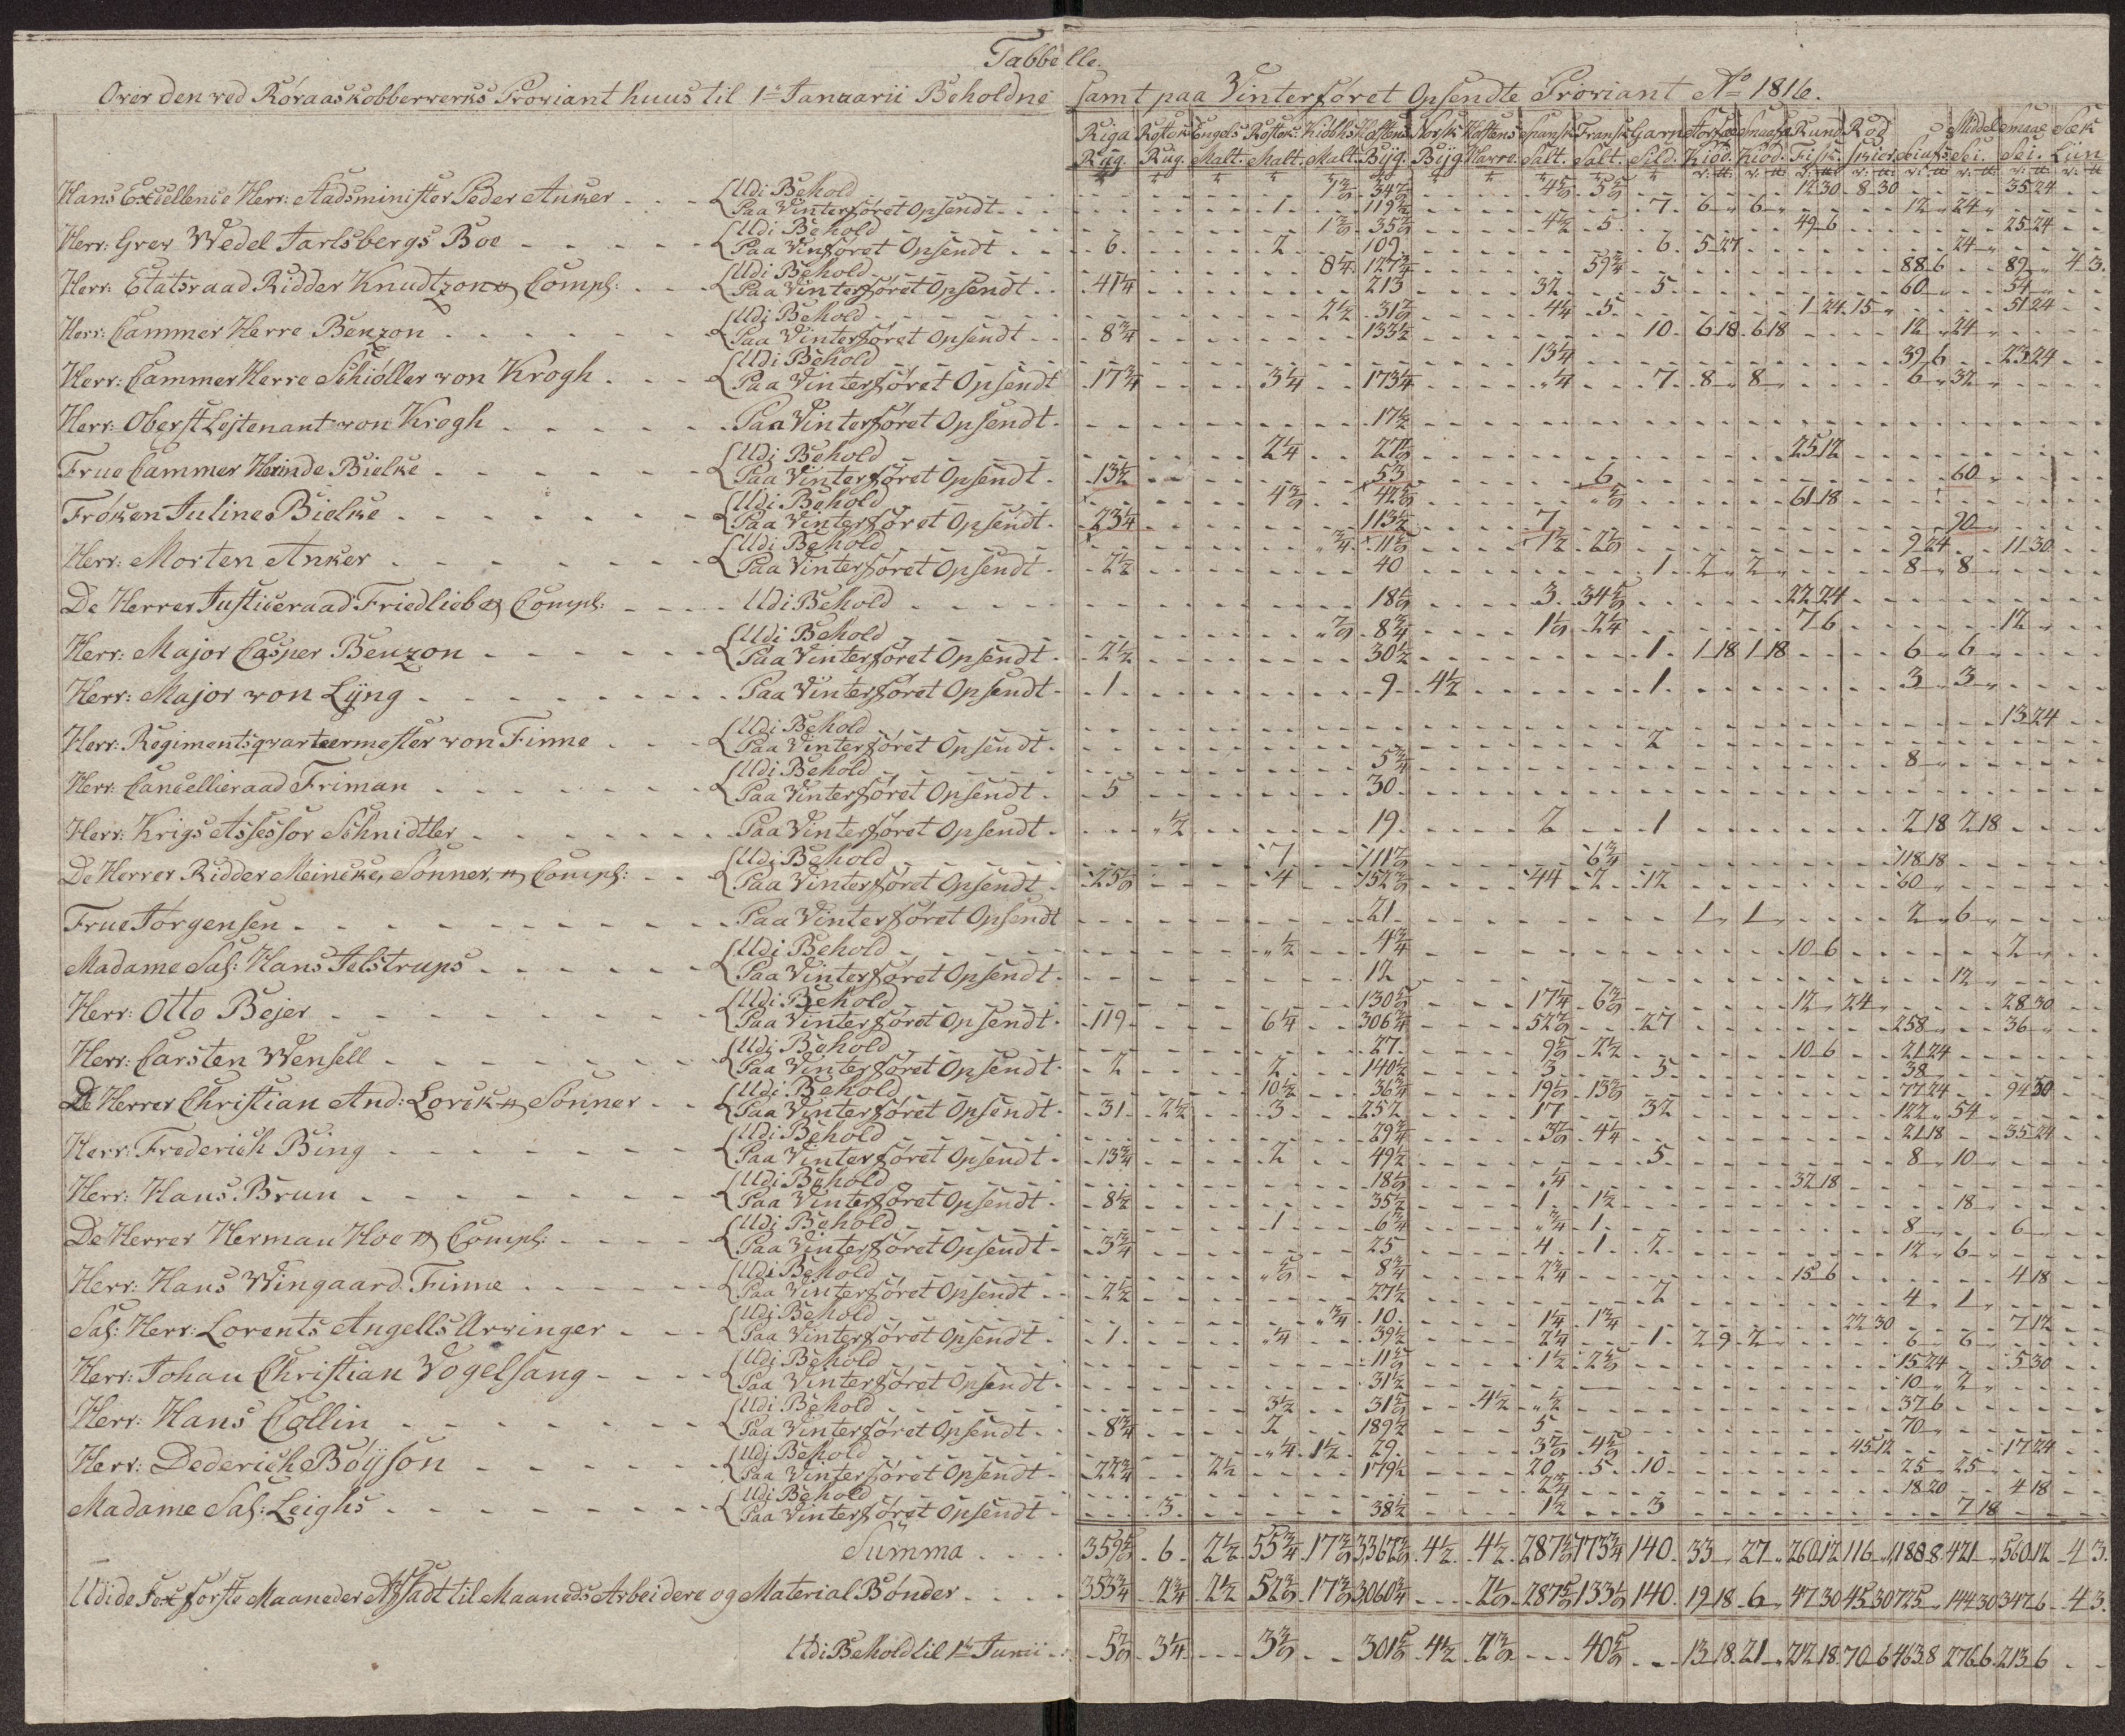 Tabbelle.
Over den ved Röraaskobberverks Proviant huus til 1te Januarii Beholdne samt paa Vinterföret Opsendte Proviant Ao 1816.
Riga Rug. Rostok Rug. Engels Malt. Rostok: Malt. Kiöbhs Malt. Holstens Byg. Norsk Byg. Holstens Havre. Spansk Salt. Fransk Salt. Garn Sild. Kiöd. Kiöd. Rund Fisk. Röd Middel Sei. Smaae Sei. Sæk Liin
Hans Excellence Herr: Stadsminister Peder Anker - - - Udi Behold 34 12 30 8 30 35 24
Paa Vinterföret Opsendt - - 1 119 7 6 „ 6 „ 12 „ 24 „
Herr: Grev Wedel Jarlsbergs Boe - - - - - Udi Behold 35 4½ 5 49 6 25 24
Paa Vinföret Opsendt - - 6 2 109 6 5 27 24 „
Herr: Etatsraad Ridder Knudtzon & Compl: - - - Udi Behold 8¼ 127¾ 59¾ 88 6 89 „ 4 3
Paa Vinterföret Opsendt - - 41¼ 213 32 5 60 „ 54 „
Herr: Cammer Herre Benzon - - - - - Udi Behold 2½ 4¼ 5 1 24 15 „ 51 24
Paa Vinterföret Opsendt - - 8¾ 133½ 10 6 18 6 18 12 „ 24 „
Herr: Cammer Herre Schiöller von Krogh - - - Udi Behold 13¼ 39 6 23 24
Paa Vinterföret Opsendt 17¾ 3¼ 173¼ „¼ 7 8 „ 8 „ 6 „ 32 „
Herr: Oberst Lejtenant von Krogh - - - - - Paa Vinterföret Opsendt - 17½
Frue Cammer Herinde Bielke - - - - - Udi Behold 2¼ 25 12
Paa Vinterföret Opsendt - 13½ 53 6 60 „
Fröken Juline Bielke - - - - - Udi Behold 61 18
Paa Vinterföret Opsendt - 23¼ 113½ 7 90 „
Herr: Morten Anker - - - - - Udi Behold „¾ 1½ 9 24 11 30
Paa Vinterföret Opsendt - 2½ 40 1 2 „ 2 „ 8 „ 8 „
De Herrer Justiceraad Friedlieb & Compl: - - - Udi Behold 3 22 24
Herr: Major Casper Benzon - - - - - Udi Behold 8¾ 2¼ 7 6 12 „
Paa Vinterföret Opsendt - 2½ 30½ 1 1 18 1 18 6 „ 6 „
Herr: Major von Lÿng - - - - - Paa Vinterföret Opsendt - 1 9 4½ 1 3 „ 3 „
Herr: Regimentsqvarteermester von Finne - - - Udi Behold 13 24
Paa Vinterföret Opsendt - 2
Herr: Cancellieraad Friman - - - - - Udi Behold 5¾ 8 „
Paa Vinterföret Opsendt - 5 30
Herr: Krigs Assessor Schnidtler - - - - - Paa Vinterföret Opsendt - „½ 19 2 1 2 18 2 18
De Herrer Ridder Meincke, Sönner, & Compl: - - Udi Behold 7 6¾ 118 18
Paa Vinterföret Opsendt - 4 44 2 12 60 „
Frue Jörgensen - - - - - Paa Vinterföret Opsendt 21 1 „ 1 „ 2 „ 6 „
Madame Sal: Hans Jelstrups - - - - - Udi Behold „½ 4¾ 10 6 2 „
Paa Vinterföret Opsendt - 12 12 „
Herr: Otto Bejer - - - - - Udi Behold 17¼ 12 „ 24 „ 28 30
Paa Vinterföret Opsendt - 119 6¼ 306¾ 27 258 „ 36 „
Herr: Carsten Wensell - - - - - Udi Behold 27 2½ 10 6 21 24
Paa Vinterföret Opsendt - 2 2 140½ 3 5 38 „
De Herrer Christian And: Lorck & Sönner - - Udi Behold 10½ 36¾ 77 24 94 30
Paa Vinterföret Opsendt - 31 2½ 3 252 17 32 122 „ 54 „
Herr: Frederich Bing - - - - - Udi Behold 29¾ 4¼ 21 18 35 24
Paa Vinterföret Opsendt - 13¾ 2 49½ 5 8 „ 10 „
Herr: Hans Brun - - - - - Udi Behold „¼ 32 18
Paa Vinterföret Opsendt - 8½ 35½ 1 1½ 18 „
De Herrer Herman Hoe & Compl: - - - - Udi Behold 1 6¾ „¾ 1 8 „ 6 „
Paa Vinterföret Opsendt - 3¾ 25 4 1 2 12 „ 6 „
Herr: Hans Wingaard Finne - - - - - Udi Behold 8¾ 2¾ 15 6 4 18
Paa Vinterföret Opsendt - 2½ 27½ 2 4 „ 1 „
Sal: Herr: Lorents Angells Arvinger - - - Udi Behold „¾ 10 1¼ 1¾ 22 30 7 12
Paa Vinterföret Opsendt - 1 „¼ 39½ 2¼ 1 2 9 2 „ 6 „ 6 „
Herr: Johan Christian Vogelsang - - - - Udi Behold 1½ 15 24 5 30
Paa Vinterföret Opsendt - 31½ 10 „ 2 „
Herr: Hans Collin - - - - - Udi Behold 3½ 4½ „½ 37 6
Paa Vinterföret Opsendt - 8¾ 2 189½ 5 70 „
Herr: Dederich Böÿson - - - - - Udi Behold „¼ 1½ 29 45 12 17 24
Paa Vinterföret Opsendt - 22¾ 2½ 179½ 20 5 10 25 „ 25 „
Madame Sal: Leighs - - - - - Udi Behold 2¾ 18 20 4 18
Paa Vinterföret Opsendt - 3 38½ 1½ 3 7 18
Summa - - - 6 2½ 55¾ 4½ 4½ 173¾ 140 33 „ 27 „ 260 12 116 „ 1188 8 421 „ 560 12 4 3
Udi de Sex förste Maaneder Afsadt til Maaneds Arbeidere og Material Bönder - - - 353¾ 2¾ 2½ 3,060¾ 140 19 18 6 „ 47 30 45 30 725 „ 144 30 347 6 4 3
Udi Behold til 1te Junii - 3¼ 4½ 13 18 21 „ 212 18 70 6 463 8 276 6 213 6